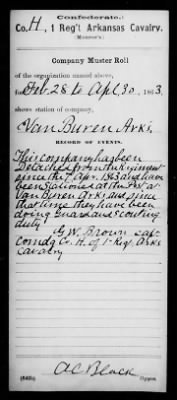 Confederate.
Co. H, 1 Reg't Arkansas Cavalry.
(Monroe's)
Company Muster Roll
of the organization named above,
for Feb. 28 to Apl. 30, 1863,
shows station of company,
Van Buren Arks.
RECORD OF EVENTS.
This company has been
Detached from the
since the 7 Apr. 1863 and have
been stationed at the Post at
Van Buren Arks and since
that time they have been
doing Guard and scouting
duty
G. W. Brown capt
comdg Co. H. of 1st Reg. Arks
Cavalry
A C Black
Copyist.